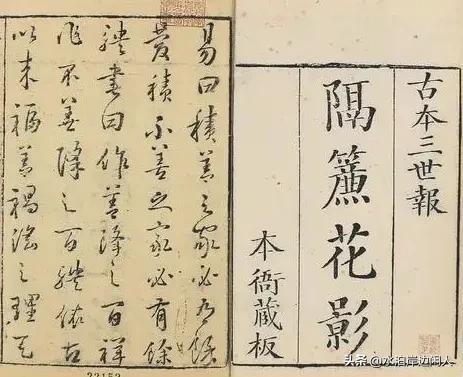 古本三世報
隔簾花影
本衙藏板
易曰積善之家必有餘
慶積不善之家必有餘
殃書曰作善降之百祥
作不善降之百殃依古
以来福善禍淫之理天
头条 @水泊岸边闲人